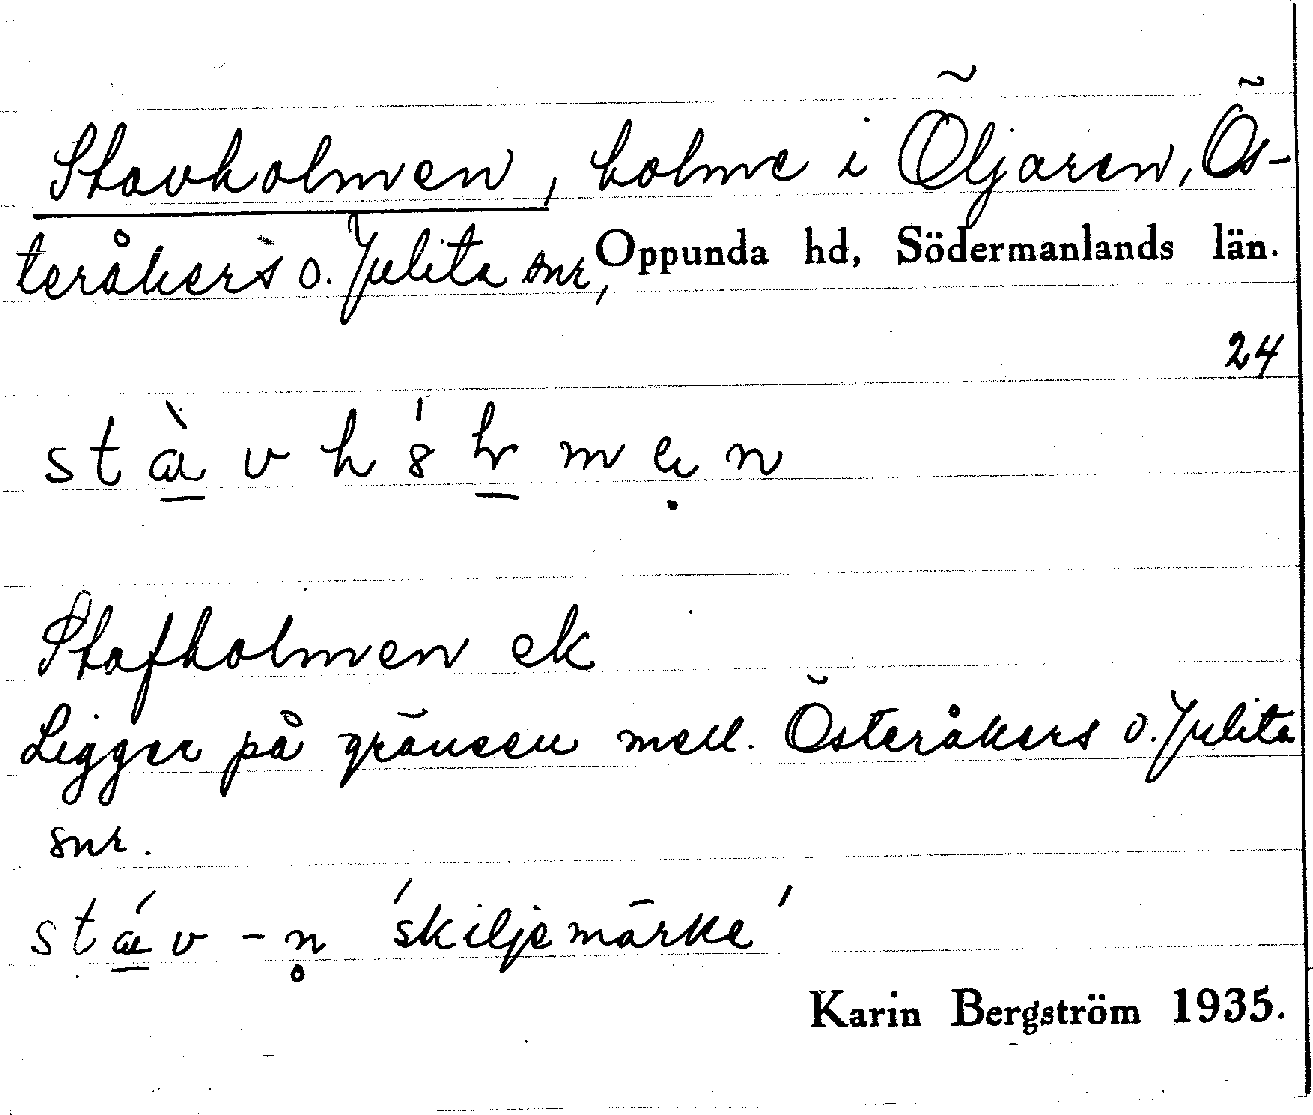 Stavholmen, holme i Öljaren, Ös-
teråkers o. Julita snr, Oppunda hd, Södermanlands län.
24
Stafholmen ek
Ligger på gränsen mell. Österåkers o. Julita
snr.
'skiljemärke'
Karin Bergström 1935.